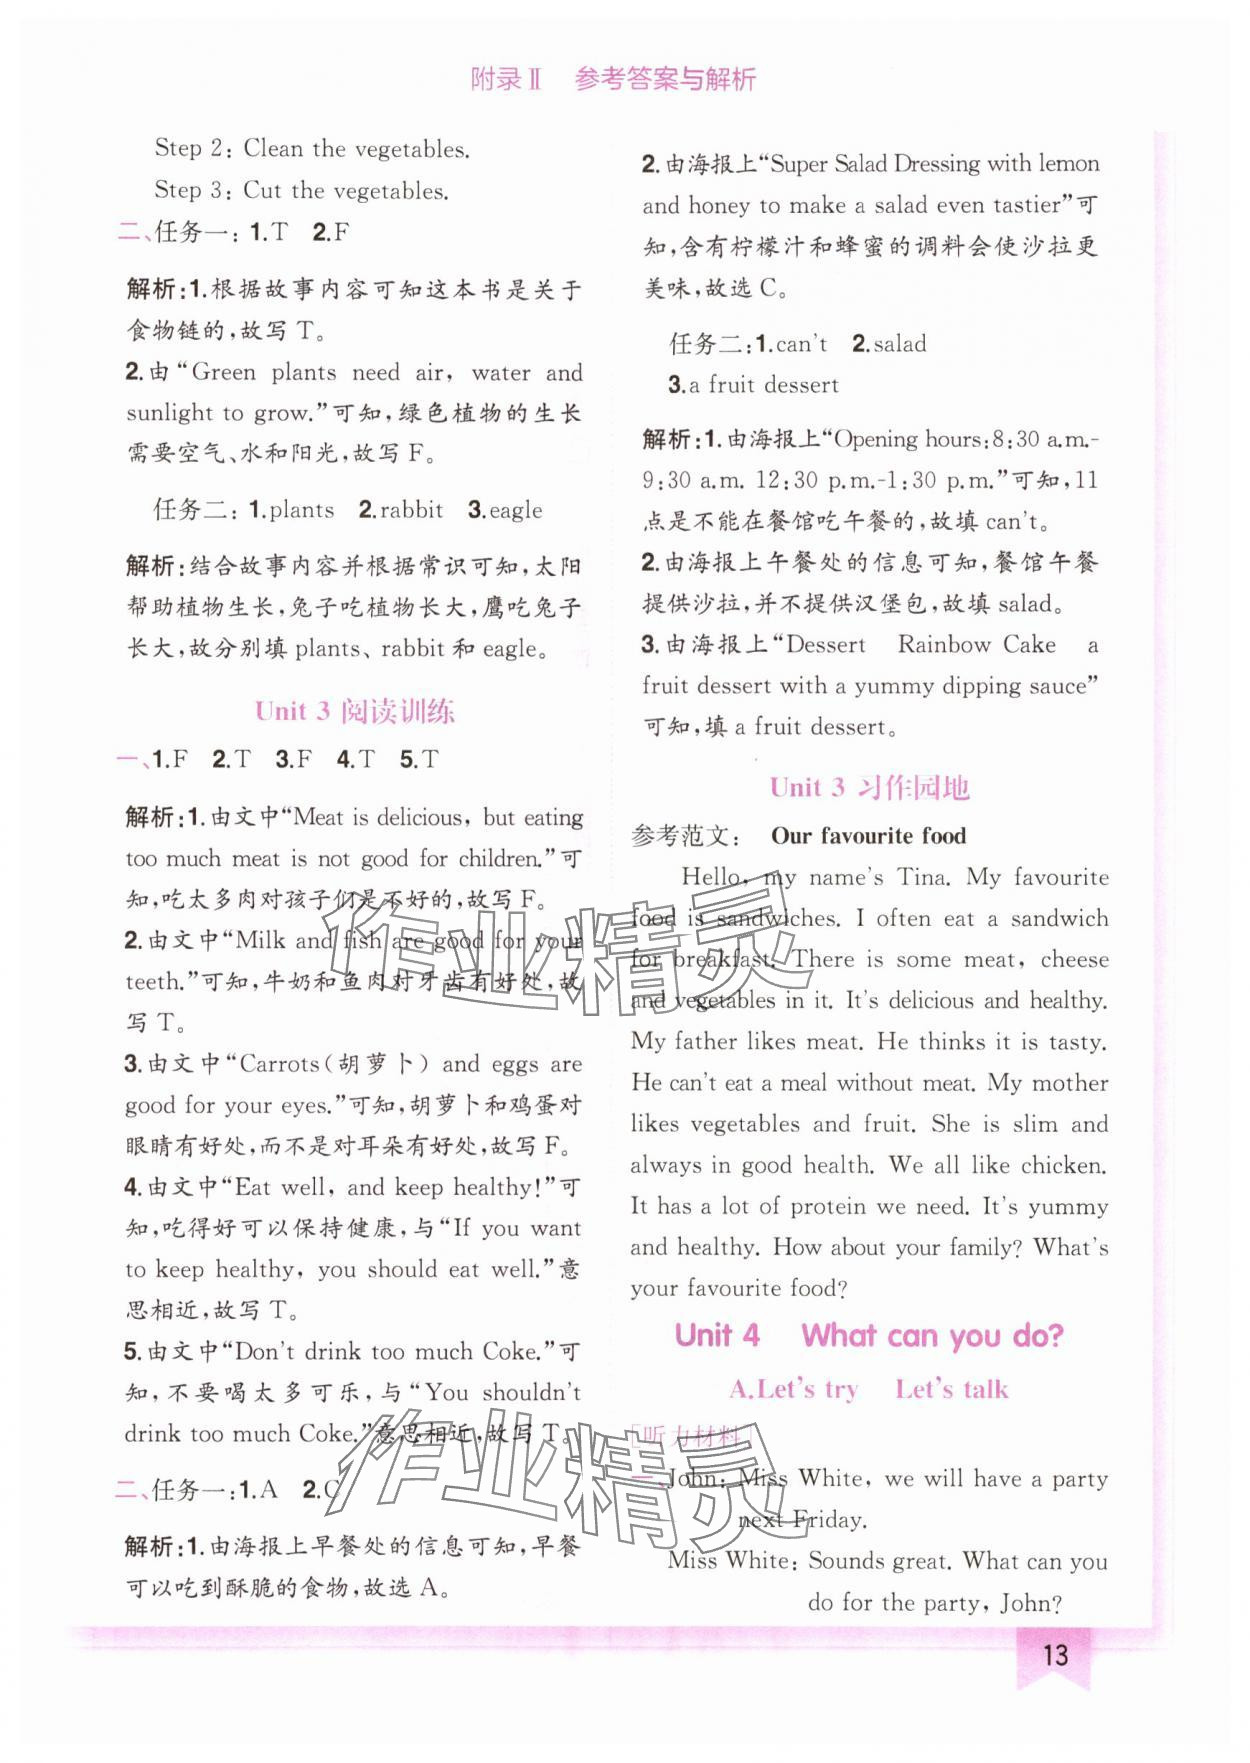 附录Ⅱ　参考答案与解析
Step 2: Clean the vegetables.
Step 3: Cut the vegetables.
二、任务一: 1.T 2.F
解析:1.根据故事内容可知这本书是关于
食物链的,故写 T。
2.由“Green plants need air, water and
sunlight to grow.”可知,绿色植物的生长
需要空气、水和阳光,故写 F。
任务二: 1.plants 2.rabbit 3.eagle
解析:结合故事内容并根据常识可知,太阳
帮助植物生长,兔子吃植物长大,鹰吃兔子
长大,故分别填 plants、rabbit 和 eagle。
Unit 3 阅读训练
一、1.F 2.T 3.F 4.T 5.T
解析:1.由文中“Meat is delicious, but eating
too much meat is not good for children.”可
知,吃太多肉对孩子们是不好的,故写 F。
2.由文中“Milk and fish are good for your
teeth.”可知,牛奶和鱼肉对牙齿有好处,故
写 T。
3.由文中“Carrots(胡萝卜) and eggs are
good for your eyes.”可知,胡萝卜和鸡蛋对
眼睛有好处,而不是对耳朵有好处,故写 F。
4.由文中“Eat well, and keep healthy!”可
知,吃得好可以保持健康,与“If you want
to keep healthy, you should eat well.”意
思相近,故写 T。
5.由文中“Don't drink too much Coke.”可
知,不要喝太多可乐,与“You shouldn't
drink too much Coke.”意思相近,故写 T。
二、任务一:1.A 2.C
解析:1.由海报上早餐处的信息可知,早餐
可以吃到酥脆的食物,故选 A。
2.由海报上“Super Salad Dressing with lemon
and honey to make a salad even tastier”可
知,含有柠檬汁和蜂蜜的调料会使沙拉更
美味,故选 C。
任务二:1.can't 2.salad
3.a fruit dessert
解析:1.由海报上“Opening hours:8:30 a.m.-
9:30 a.m. 12:30 p.m.-1:30 p.m.”可知,11
点是不能在餐馆吃午餐的,故填 can't。
2.由海报上午餐处的信息可知,餐馆午餐
提供沙拉,并不提供汉堡包,故填 salad。
3.由海报上“Dessert Rainbow Cake a
fruit dessert with a yummy dipping sauce”
可知,填 a fruit dessert。
Unit 3 习作园地
参考范文: Our favourite food
Hello, my name's Tina. My favourite
food is sandwiches. I often eat a sandwich
for breakfast. There is some meat, cheese
and vegetables in it. It's delicious and healthy.
My father likes meat. He thinks it is tasty.
He can't eat a meal without meat. My mother
likes vegetables and fruit. She is slim and
always in good health. We all like chicken.
It has a lot of protein we need. It's yummy
and healthy. How about your family? What's
your favourite food?
Unit 4 What can you do?
A.Let's try Let's talk
[听力材料]
一、John: Miss White, we will have a party
next Friday.
Miss White: Sounds great. What can you
do for the party, John?
13
作业精灵
作业精灵